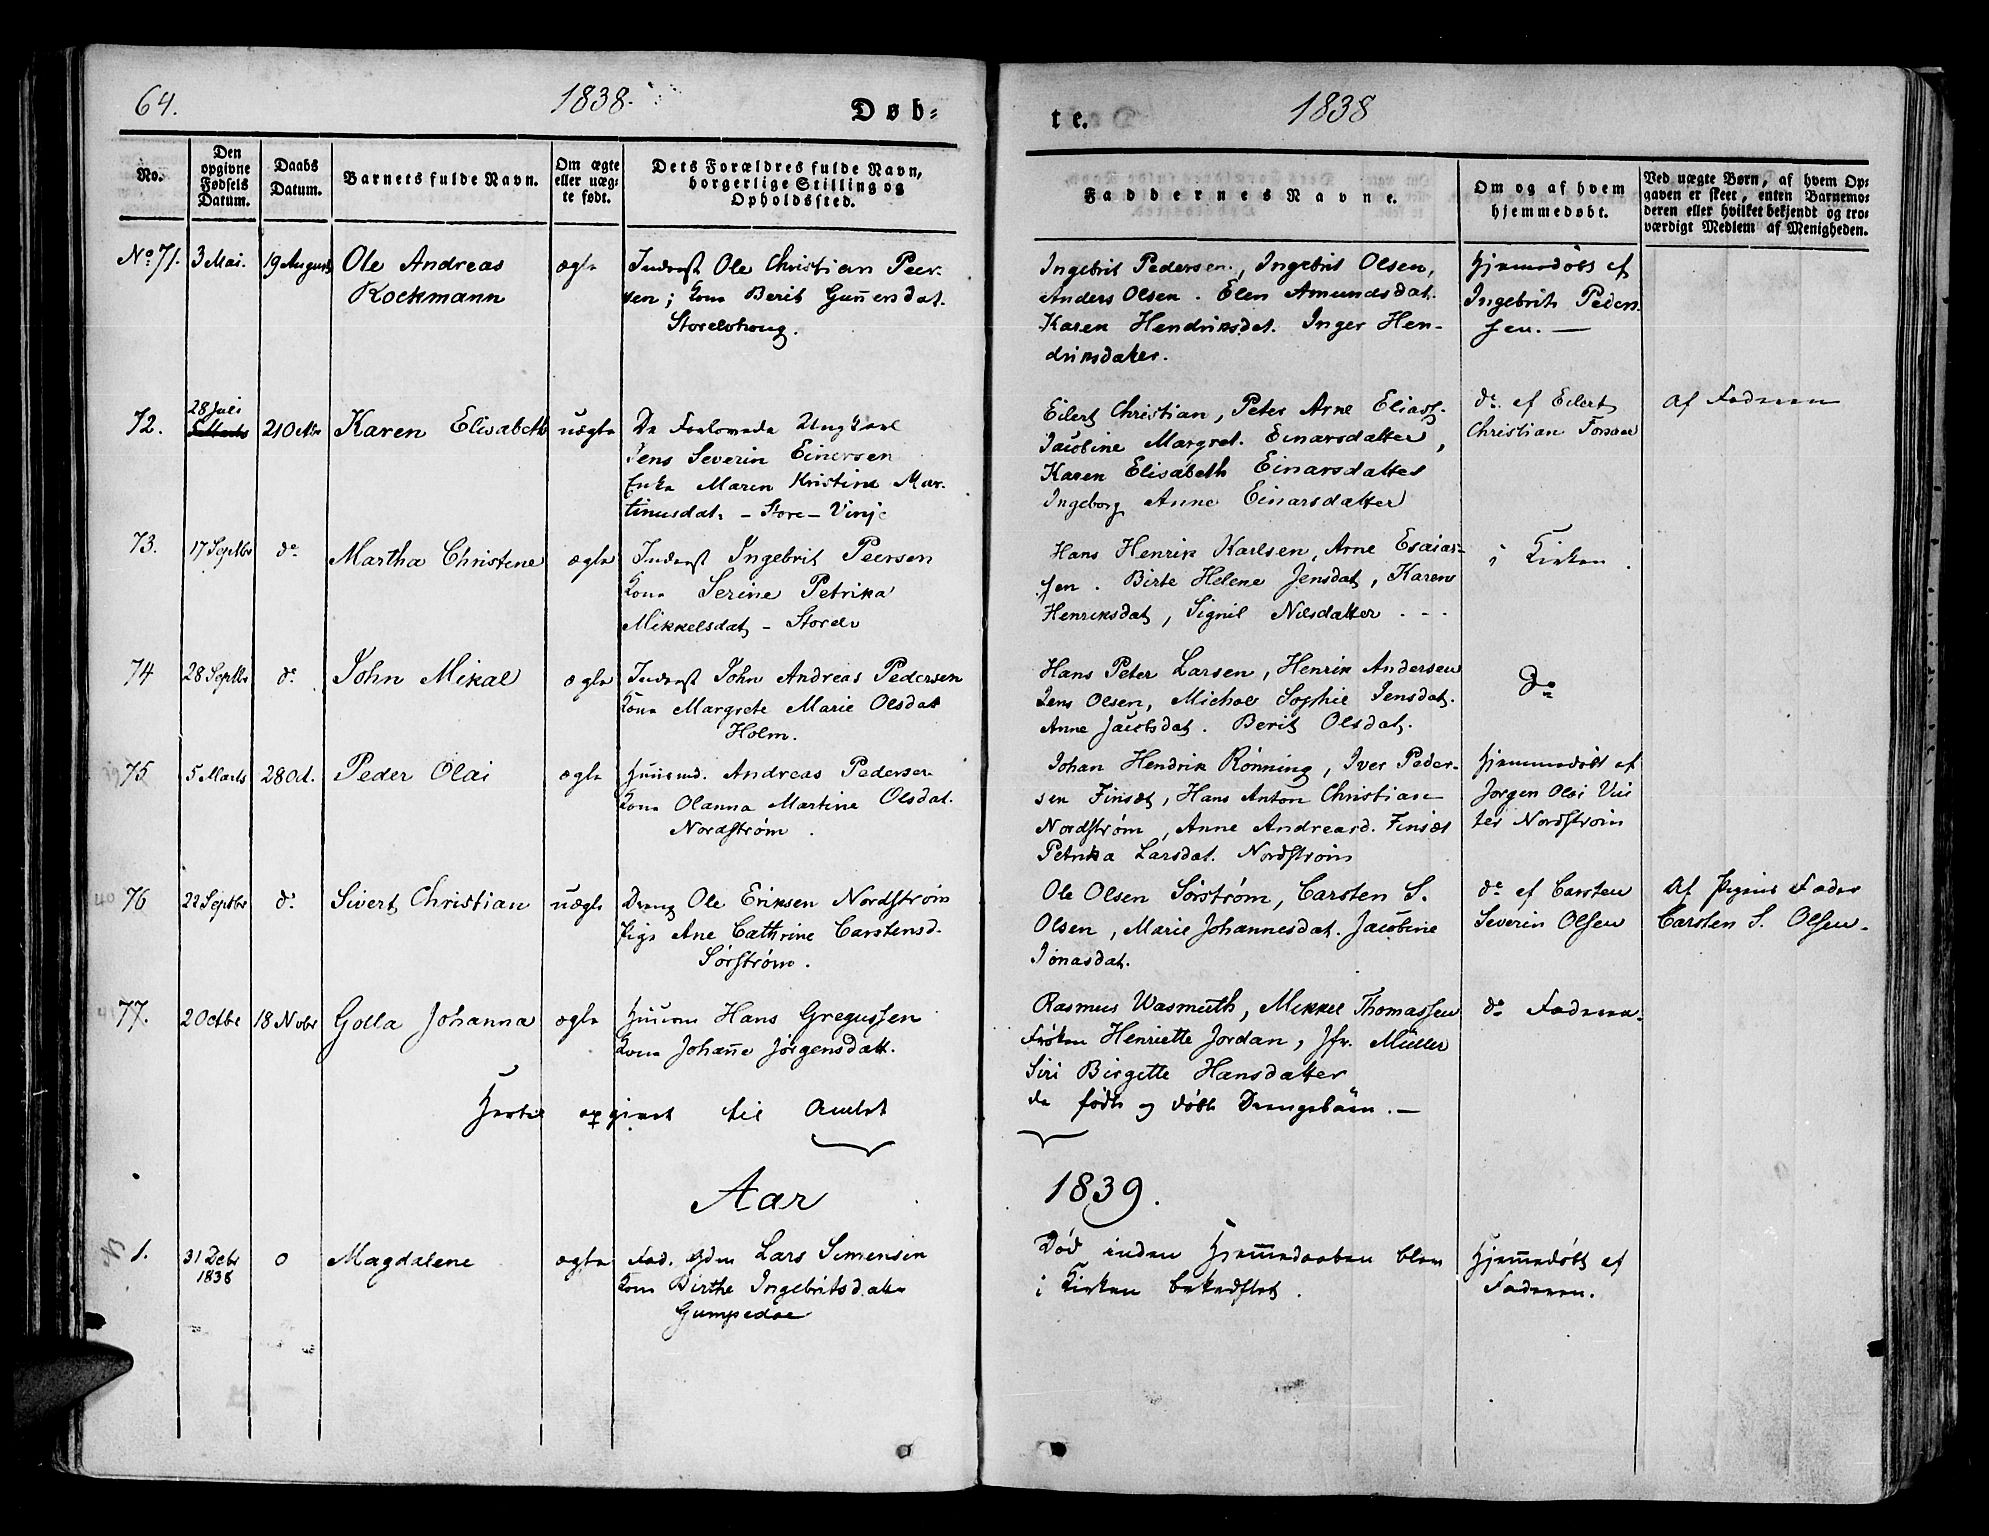 64.
1838.
Døb-
te.
1838
No.
Den opgivne Fødsels Datum.
Daabs Datum.
Barnets fulde Navn.
Om ægte eller uægte født.
Dets Forældres fulde Navn, borgerlige Stilling og Opholdssted.
Faddernes Navne.
Om og af hvem hjemmedøbt.
Ved uægte Børn, af hvem Opgaven er skeet, enten Barnemoderen eller hvilket bekjendt og troværdigt Medlem af Menigheden.
No 71. 3 Mai. 19 August Ole Andreas Rockmann ægte
Inderst Ole Christian Peer-
sen; Kone Berit Gunnersdat.
Ingebrit Pedersen, Ingebrit Olsen,
Anders Olsen. Elen Amundsdat.
Karen Hendriksdat. Inger Hen-
driksdatter.
Hjemmedøbt af
Ingebrit Peder-
sen.
72. 28 Juli 21 Octbr Karen Elisabeth uægte
De Forlovede Ungkarl
Jens Severin Einersen
Enke Maren Kristine Mar-
tinusdat. - Store-Vinje
Eilert Christian, Peter Arne Eliass.
Jacobine Margret. Einarsdatter,
Karen Elisabeth Einarsdatter
Ingeborg Anne Einarsdatter
do af Eilert
Christian
af Faderen
73. 17 Septbr do Martha Christine ægte
Inderst Ingebrit Peersen
Kone Serine Petrika
Mikkelsdat -
Hans Henrik Karlsen, Arne Esaias-
sen. Birte Helene Jensdat, Karen
Henriksdat, Signil Nilsdatter
i Kirken.
74 28 Septbr do John Mikal ægte
Inderst John Andreas Pedersen
Kone Margrete Marie Olsdat
Holm.
Hans Peter Larsen, Henrik Andersen
Jens Olsen, Michal Sophie Jensdat.
Anne Jacobsdat. Berit Olsdat.
Do
75 5 Marts 28 Oct. Peder Olai ægte
Huusmd. Andreas Pedersen
Kone Olanna Martine Olsdat.
Nordstrøm.
Johan Hendrik Rønning, Iver Peder-
sen Finsæt, Hans Anton Christian
Nordstrøm, Anne Andreasd. Finsæt
Petrika Larsdat. Nordstrøm
Hjemmedøbt af
Jørgen Olai
Nordstrøm
76 22 Septbr do Sivert Christian uægte
Dreng Ole Eriksen Nordstrøm
Pige Ane Cathrine Carstensd.
Sørstrøm.
Ole Olsen Sørstrøm, Carsten S.
Olsen, Marie Johannesdat. Jacobine
Jonasdat.
do af Carsten
Severin Olsen
Af Pigens Fader
Carsten S. Olsen.
77. 2 Octbr 18 Nvbr Golla Johanna ægte
Huusm Hans Gregussen
Kone Johanne Jørgensdatt.
Rasmus Wasmuth, Mikkel Thomassen
Frøken Henriette Jordan, Jfr. Müller
Siri Birgitte Hansdatter
do Faderen.
opgivet til Amtet
de fødte og døbte Drengebørn.
Aar 1839.
1. 31 Decbr 1838 0 Magdalene ægte
Lars Simensen
Kone Birthe Ingebritsdatter
Gumpedae
Død, inden Hjemmedaaben blev
i Kirken bekræftet.
Hjemmedøbt af
Faderen.